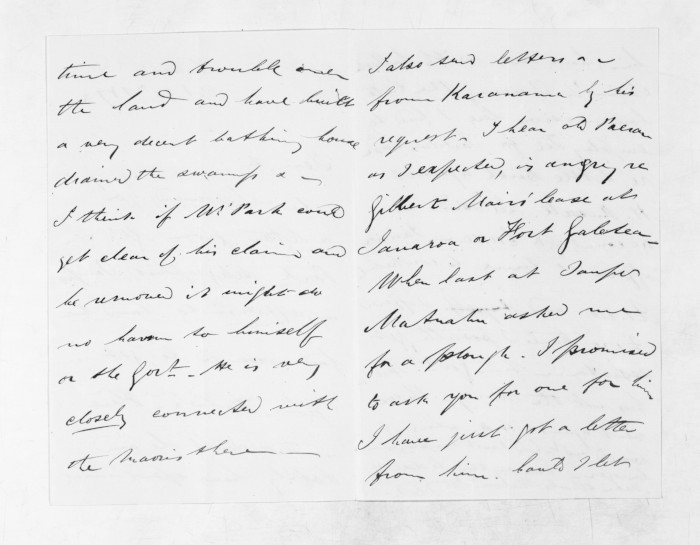 time and trouble over
the land and have built
a very decent bathing house
drained the swamps &c
I think if Mr Park could
get clear of his claim and
be removed it might do
no harm to himself
or the Govt. He is very
closely connected with
the Maoris there —
I also send letters
from Karanama by his
request. I hear old
as I expected, is angry re
Gilbert Mair's lease at
or Fort Galatea —
When last at Taupo
asked me
for a plough. I promised
to ask you for one for him
I have just got a letter
from him. Could I let